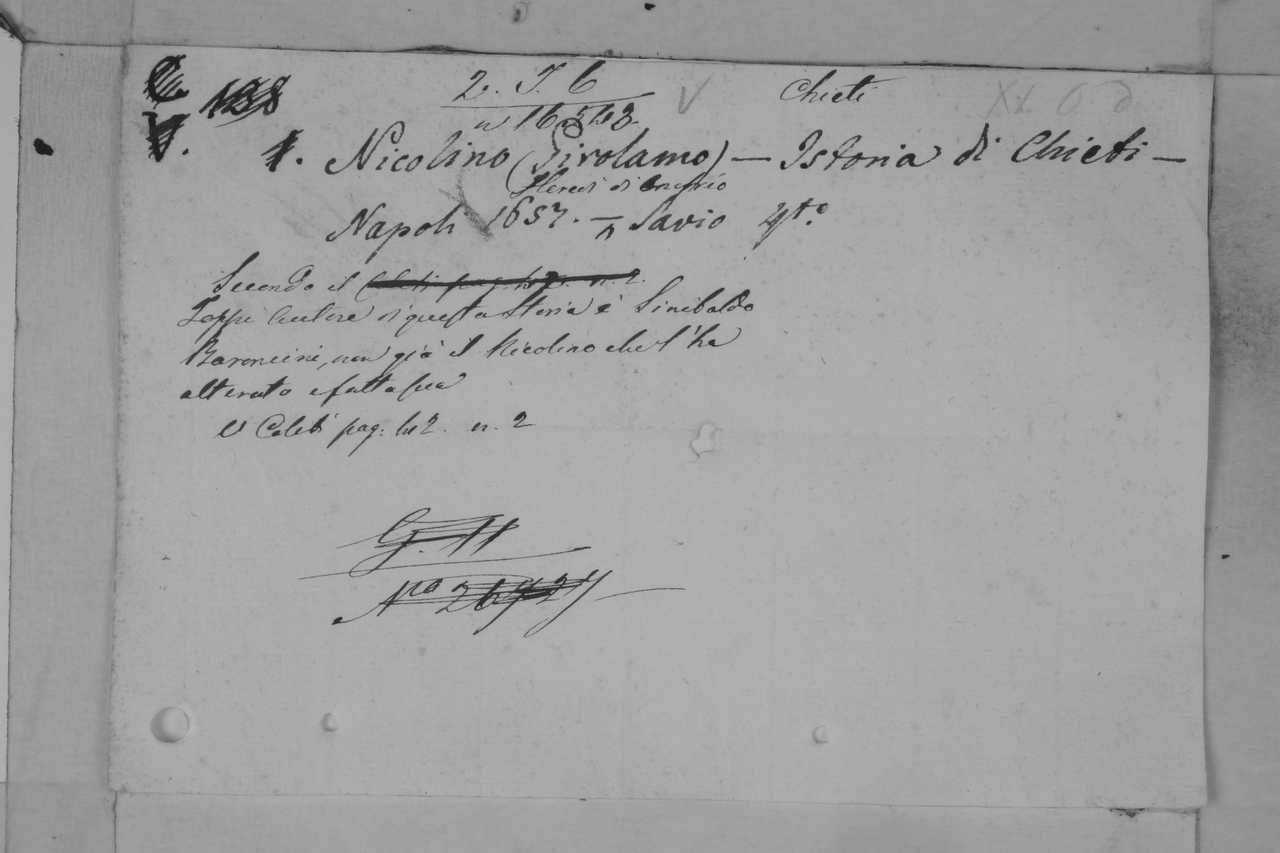 138
2. T. 6
Chieti
n 16
1. Nicolino (Girolamo) — Istoria di Chieti —
Heredi di Onofrio
Napoli 1657. — Savio 4to.
Secondo il
Toppi Autore di questa Storia è Sinibaldo
Baroncini, non già il Nicolino che l'ha
alterato e fatta sua
V pag. n. 2
G. 11
No 26727